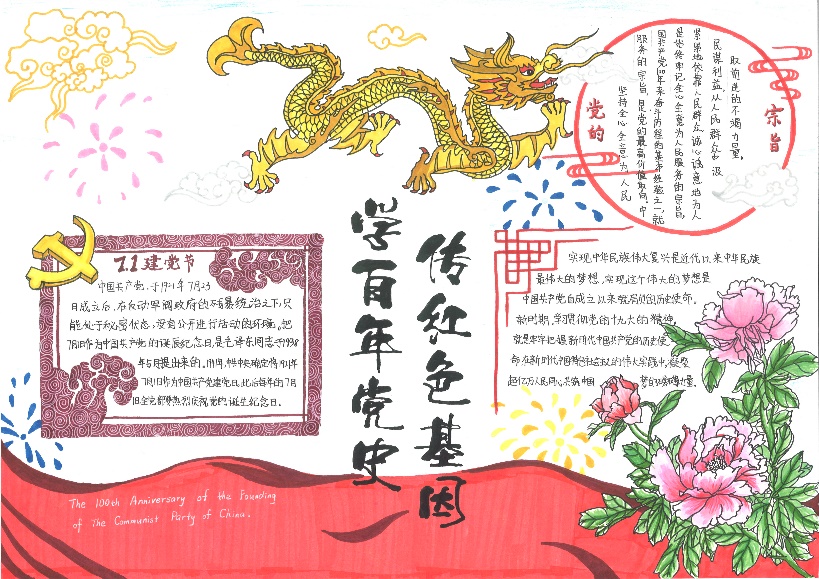 7.1建党节
中国共产党,于1921年7月23
日成立后,在反动军阀政府的残暴统治之下,只
能处于秘密状态,没有公开进行活动的环境。把
7月1日作为中国共产党的诞辰纪念日,是毛泽东同志于1938
年5月提出来的。
7月1日作为中国共产党建党日,此后每年的7月
1日全党都要热烈庆祝党的诞生纪念日。
学百年党史
传红色基因
党的
宗旨
坚持全心全意为人民
服务的宗旨,是党的最高价值取向。中
国共产党100年来奋斗历程的基本经验之一,就
是始终牢记全心全意为人民服务的宗旨,
紧紧地依靠人民群众诚心诚意地为人
民谋利益,从人民群众中汲
取前进的不竭力量。
实现中华民族伟大复兴是近代以来中华民族
最伟大的梦想,实现这个伟大的梦想是
中国共产党自成立以来就肩负的历史使命。
新时期,学习贯彻党的十九大的精神,
就是牢牢把握新时代中国共产党的历史使
命,在新时代中国特色社会主义的伟大实践中,凝聚
超亿万人民同心共筑中国
The 100th Anniversary of the Founding
of The Communist Party of China.